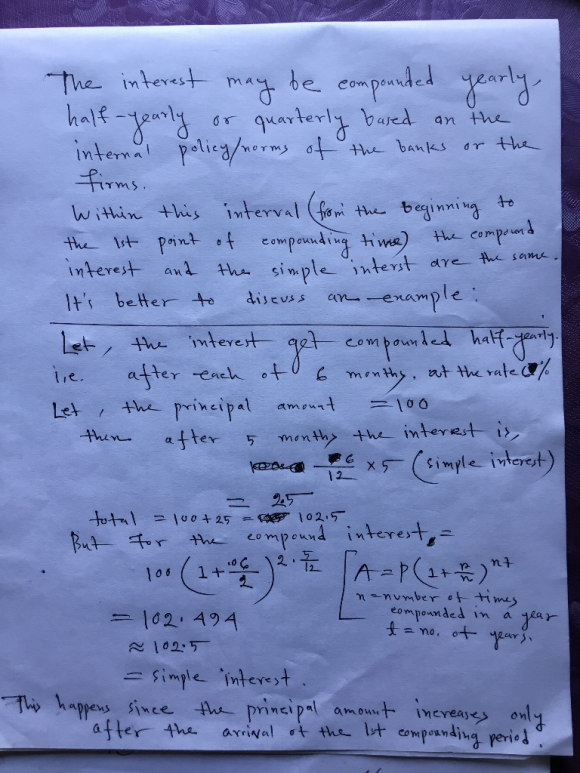 The interest may be compounded yearly,
half-yearly or quarterly based on the
internal policy/norms of the banks or the
firms.
Within this interval (from the beginning to
the 1st point of compounding time) the compound
interest and the simple interst are the same.
It's better to discuss an example :
Let, the interest get compounded half-yearly.
i.e. after each of 6 months, at the rate 6%
Let, the principal amount = 100
then after 5 months the interest is,
6/12 × 5 (simple interest)
= 2.5
total = 100 + 25 = 102.5
But for the compound interest, =
100 (1 + .06/2)^2·5/12 [A = P(1 + r/n)^nt
n = number of times
compounded in a year
= 102.494
t = no. of years.
≈ 102.5
= simple interest.
This happens since the principal amount increases only
after the arrival of the 1st compounding period.